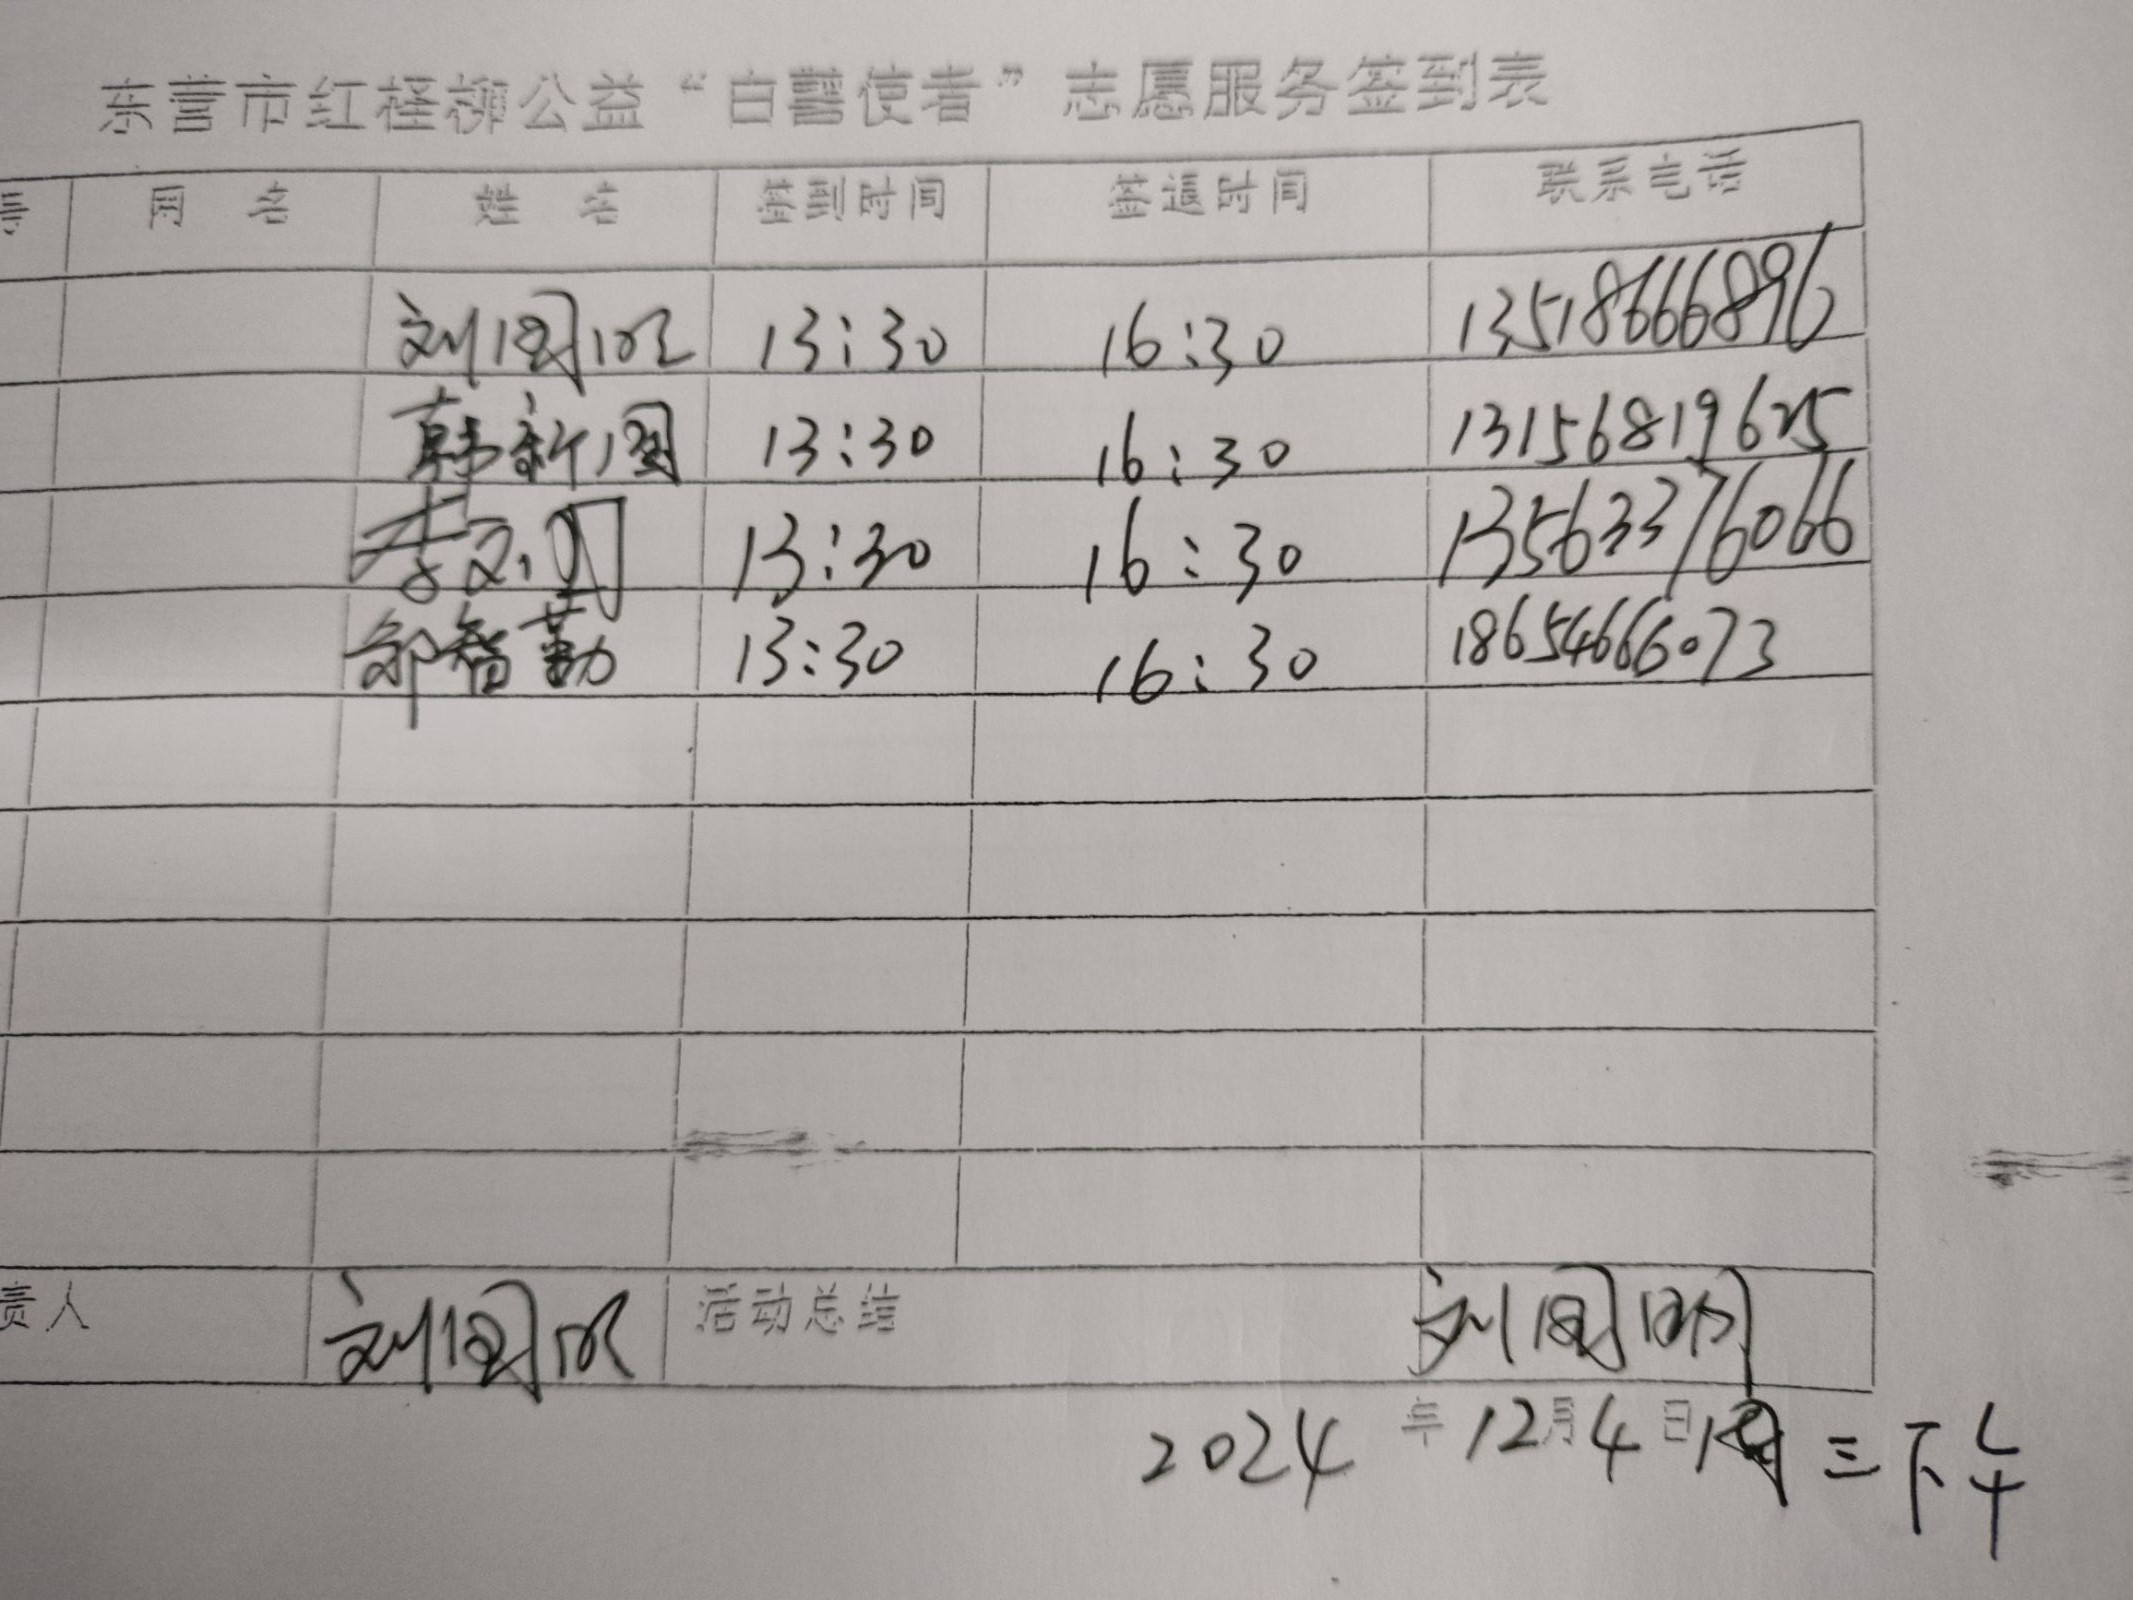 东营市红柽柳公益“白鹭使者”志愿服务签到表
网 名 姓 名 签到时间 签退时间 联系电话
刘国明 13:30 16:30 13518666896
韩新国 13:30 16:30 13156819625
李 13:30 16:30 13563376066
郭智勤 13:30 16:30 18654666073
责人 刘国明 活动总结 刘国明
2024 年 12月4日 周三下午